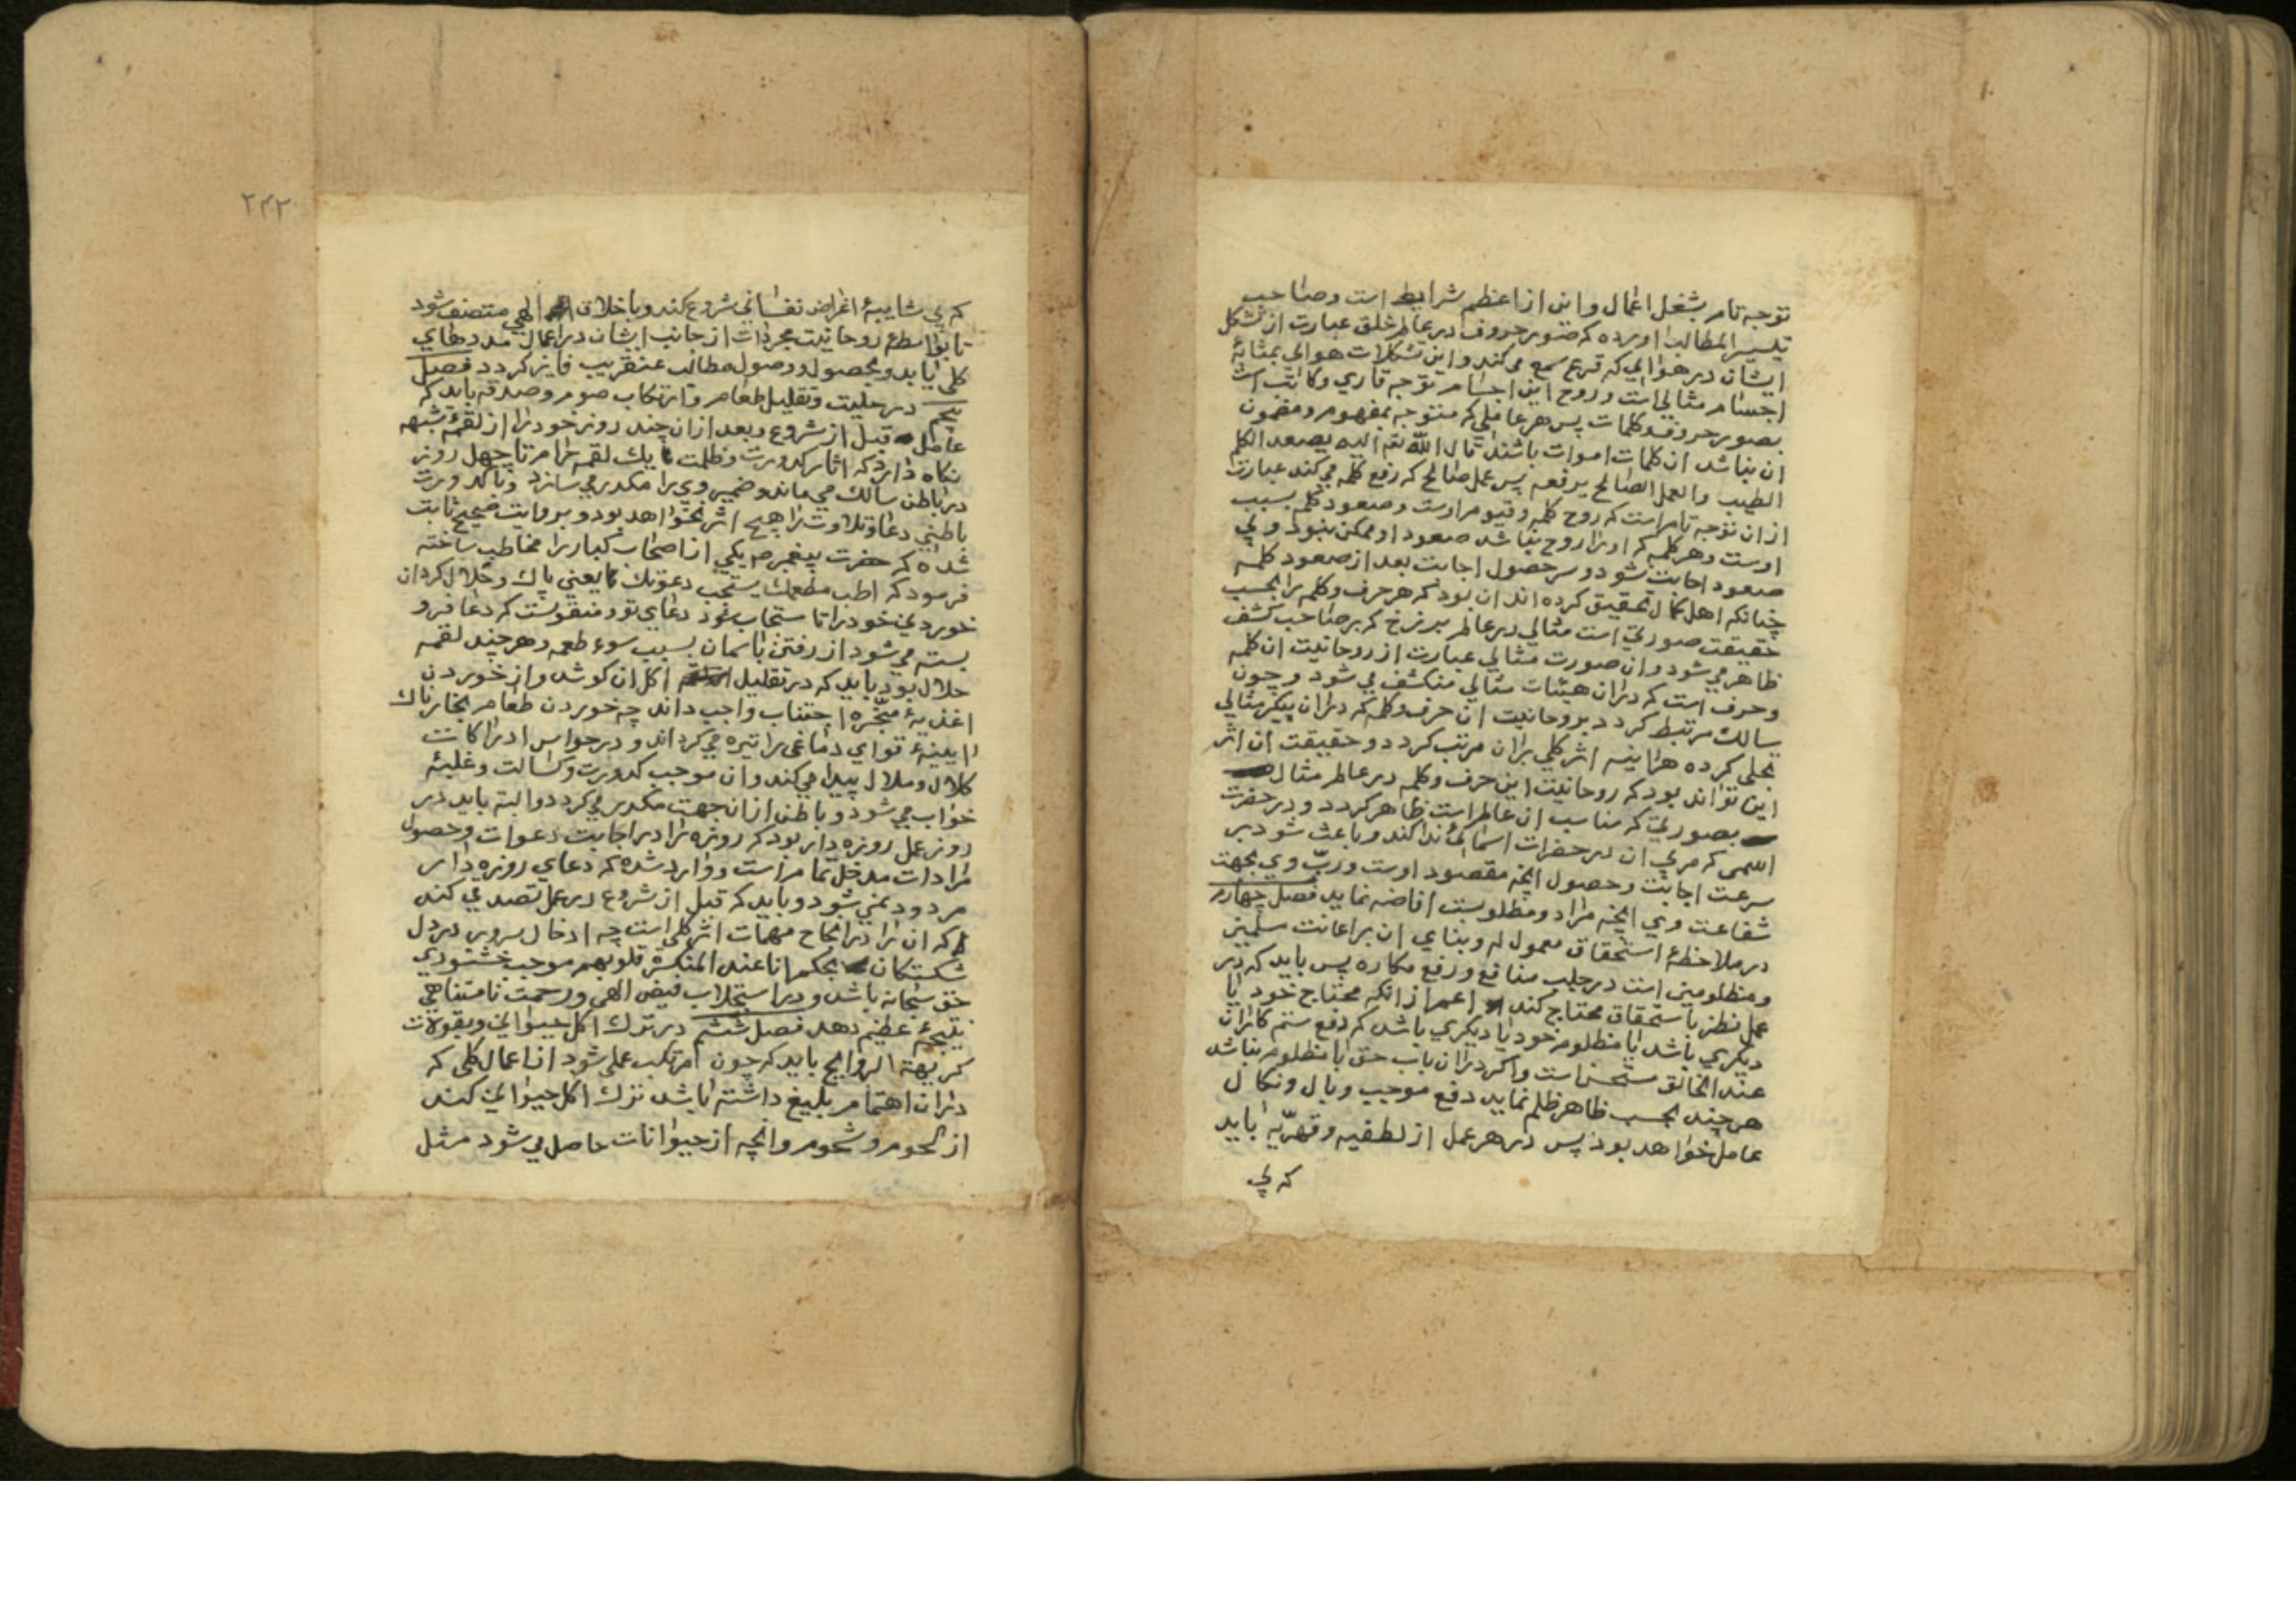 توجه تام بشغل اعمال و اين از اعظم شرايط است و صاحب
تيسير المطالب اورده كه صور حروف در عالم خلق عبارت از تشكل
ايشان در هوائي كه قرع سمع مى كند و اين تشكلات هوائي بمثابۀ
اجسام مثالي است و روح اين اجسام توجه قاري و كاتب است
بصور حروف و كلمات پس هر عاملي كه متوجه بمفهوم و مضمون
ان نباشد ان كلمات اموات باشند قال الله تعه اليه يصعد الكلم
الطيب والعمل الصالح يرفعه پس عمل صالح كه رفع كلمه مي كند عبارت
ازان توجه تام است كه روح كلمه و قيوم اوست و صعود كلم بسبب
اوست و هر كلمه كه او را روح نباشد صعود او ممكن نبود و بي
صعود اجابت نشود و سر حصول اجابت بعد از صعود كلمه
چنانكه اهل كمال تحقيق كرده اند ان بود كه هر حرف و كلمه را بحسب
حقيقت صورتي است مثالي در عالم برزخ كه بر صاحب كشف
ظاهر مي شود و ان صورت مثالي عبارت از روحانيت ان كلمه
و حرف است كه دران هيئات مثالي منكشف مي شود و چون
سالك مرتبط كردد بروحانيت ان حرف و كلمه كه دران پيكر مثالي
تجلى كرده هراينه اثر كلي بران مرتب كردد و حقيقت ان اثر
اين تواند بود كه روحانيت اين حرف و كلمه در عالم مثال
بصورتي كه مناسب ان عالم است ظاهر كردد و در حضرت
اسمى كه مربي ان در حضرات اسمائي ندا كند و باعث شود بر
سرعت اجابت و حصول انچه مقصود اوست و ربّ وي بجهت
شفاعت وي انچه مراد و مطلوبست افاضه نمايد فصل چهارم
در ملاحظۀ استحقاق معمول له و بناي ان بر اعانت مسلمين
و مظلومين است در جلب منافع و رفع مكاره پس بايد كه در
عمل نظر باستحقاق محتاج كند اعم از انكه محتاج خود يا
ديكري باشد يا مظلوم خود يا ديكري باشد كه دفع ستم كاران
عند الخالق مستحسن است و اكر دران باب حق با مظلوم نباشد
هر چند بحسب ظاهر ظلم نمايد دفع موجب وبال و نكال
عامل خواهد بود پس در هر عمل از لطفيه و قهريّه بايد
كه بي
٢٤٢
كه بي شايبۀ اغراض نفساني شروع كند و باخلاق الهي متصف شود
تا بواسطۀ روحانيت مجردات از جانب ايشان در اعمال مددهاي
كلي يابد و بحصول و وصول مطالب عنقريب فايز كردد فصل
پنجم در حليت و تقليل طعام و ارتكاب صوم و صدقه بايد كه
عامل قبل از شروع و بعد ازان چند روز خود را از لقمۀ شبهه
نكاه دارد كه اثار كدورت و ظلمت يك لقمه حرام تا چهل روز
در باطن سالك مي ماند و ضمير وي را مكدر مي سازد و با كدورت
باطني دعا و تلاوت را هيچ اثر نخواهد بود و بروايت صحيح ثابت
شده كه حضرت پيغمبر ص يكي از اصحاب كبار را مخاطب ساخته
فرمود كه اطب مطعمك يستجب دعوتك يعني پاك و حلال كردان
خوردني خود را تا مستجاب شود دعاي تو و منقولست كه دعا فرو
بسته مي شود از رفتن باسمان بسبب سوء طعمه و هر چند لقمه
حلال بود بايد كه در تقليل اكل ان كوشد و از خوردن
اغذيۀ مبخّره اجتناب واجب داند چه خوردن طعام بخارناك
ايينۀ قواي دماغى را تيره مي كرداند و در حواس ادراكات
كلال و ملال پيدا مي كند و ان موجب كدورت و كسالت و غلبۀ
خواب مي شود و باطن ازان جهت مكدر مي كردد و البته بايد در
روز عمل روزه دار بود كه روزه را در اجابت دعوات و حصول
مرادات مدخل تمام است و وارد شده كه دعاي روزه دار
مردود نمي شود و بايد كه قبل از شروع در عمل تصدق كند
كه ان را در انجاح مهمات اثر كلى است چه ادخال سرور در دل
شكستكان بحكم انا عند المنكسرة قلوبهم موجب خشنودي
حق سبحانه باشد و در استجلاب فيض الهى و رحمت نامتناهي
نتيجۀ عظيم دهد فصل ششم در ترك اكل حيواني و بقولات
كريهة الروايح بايد كه چون مرتكب عملى شود از اعمال كلى كه
دران اهتمام بليغ داشته باشد ترك اكل حيواني كند
از لحوم و شحوم و انچه از حيوانات حاصل مي شود مثل